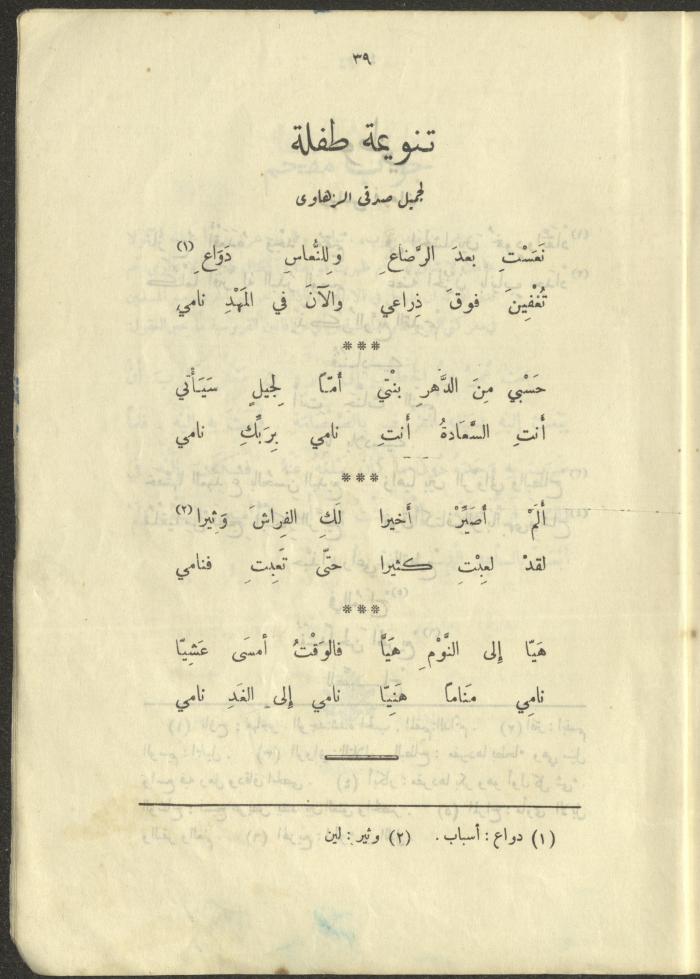 ٣٩
تنويمة طفلة
لجميل صدقي الزهاوى
نَعَسْتِ بعدَ الرَّضاعِ ولِلنُّعاسِ دَوَاعِ (١)
تُغْفِينَ فوقَ ذِراعي والآنَ في المَهْدِ نامي
***
حَسْبي مِنَ الدَّهرِ بنْتي أمّا لِجيلٍ سَيَأْتي
أنتِ السَّعَادةُ أنتِ نامي بِرَبِّكِ نامي
***
أَلَمْ أصَيِّرْ أخيرا لَكِ الفِراشَ وَثِيرا (٢)
لقدْ لعِبْتِ كثيرا حتّى تَعِبتِ فنامي
***
هَيّا إلى النَّوْمِ هَيَّا فالوَقْتُ أمسَى عَشِيّا
نامِي مَناماً هَنِيّا نامي إلى الغَدِ نامي
(١) دواع : أسباب . (٢) وثير : لين